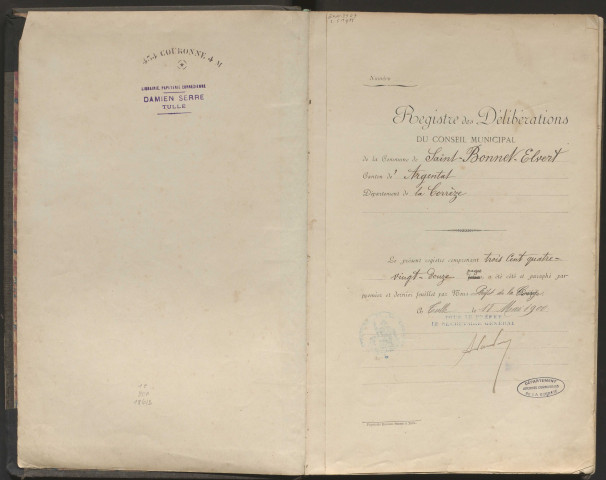 454 COURONNE 4 M
LIBRAIRIE, PAPETERIE
DAMIEN SERRE
TULLE
Numéro
Registre des Délibérations
DU CONSEIL MUNICIPAL
de la Commune de Saint-Bonnet-Elvert
Canton d' Argentat
Département de la Corrèze
Le présent registre comprenant trois cent quatre-
vingt-douze a été coté et paraphé par
première et dernière feuillet par Nous Préfet de la Corrèze
A Tulle le 15 Mai 1900
LE SECRÉTAIRE GÉNÉRAL
DÉPARTEMENT
DE LA CORRÈZE